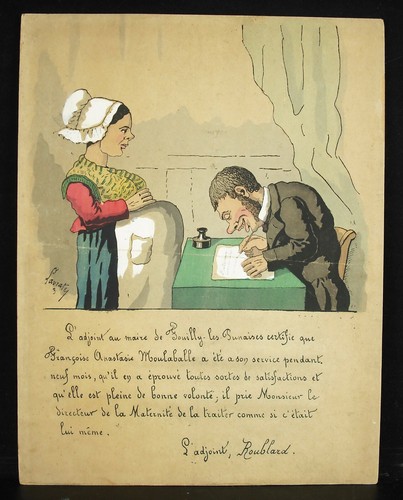 L'adjoint au maire de Fouilly-les-Punaises certifie que
Françoise Anastasie Moulaballe a été a son service pendant
neuf mois, qu'il en a éprouvé toutes sortes de satisfactions et
qu'elle est pleine de bonne volonté; il prie Monsieur le
directeur de la Maternité de la traiter comme si c'était
lui même.
L'adjoint, Roublard.